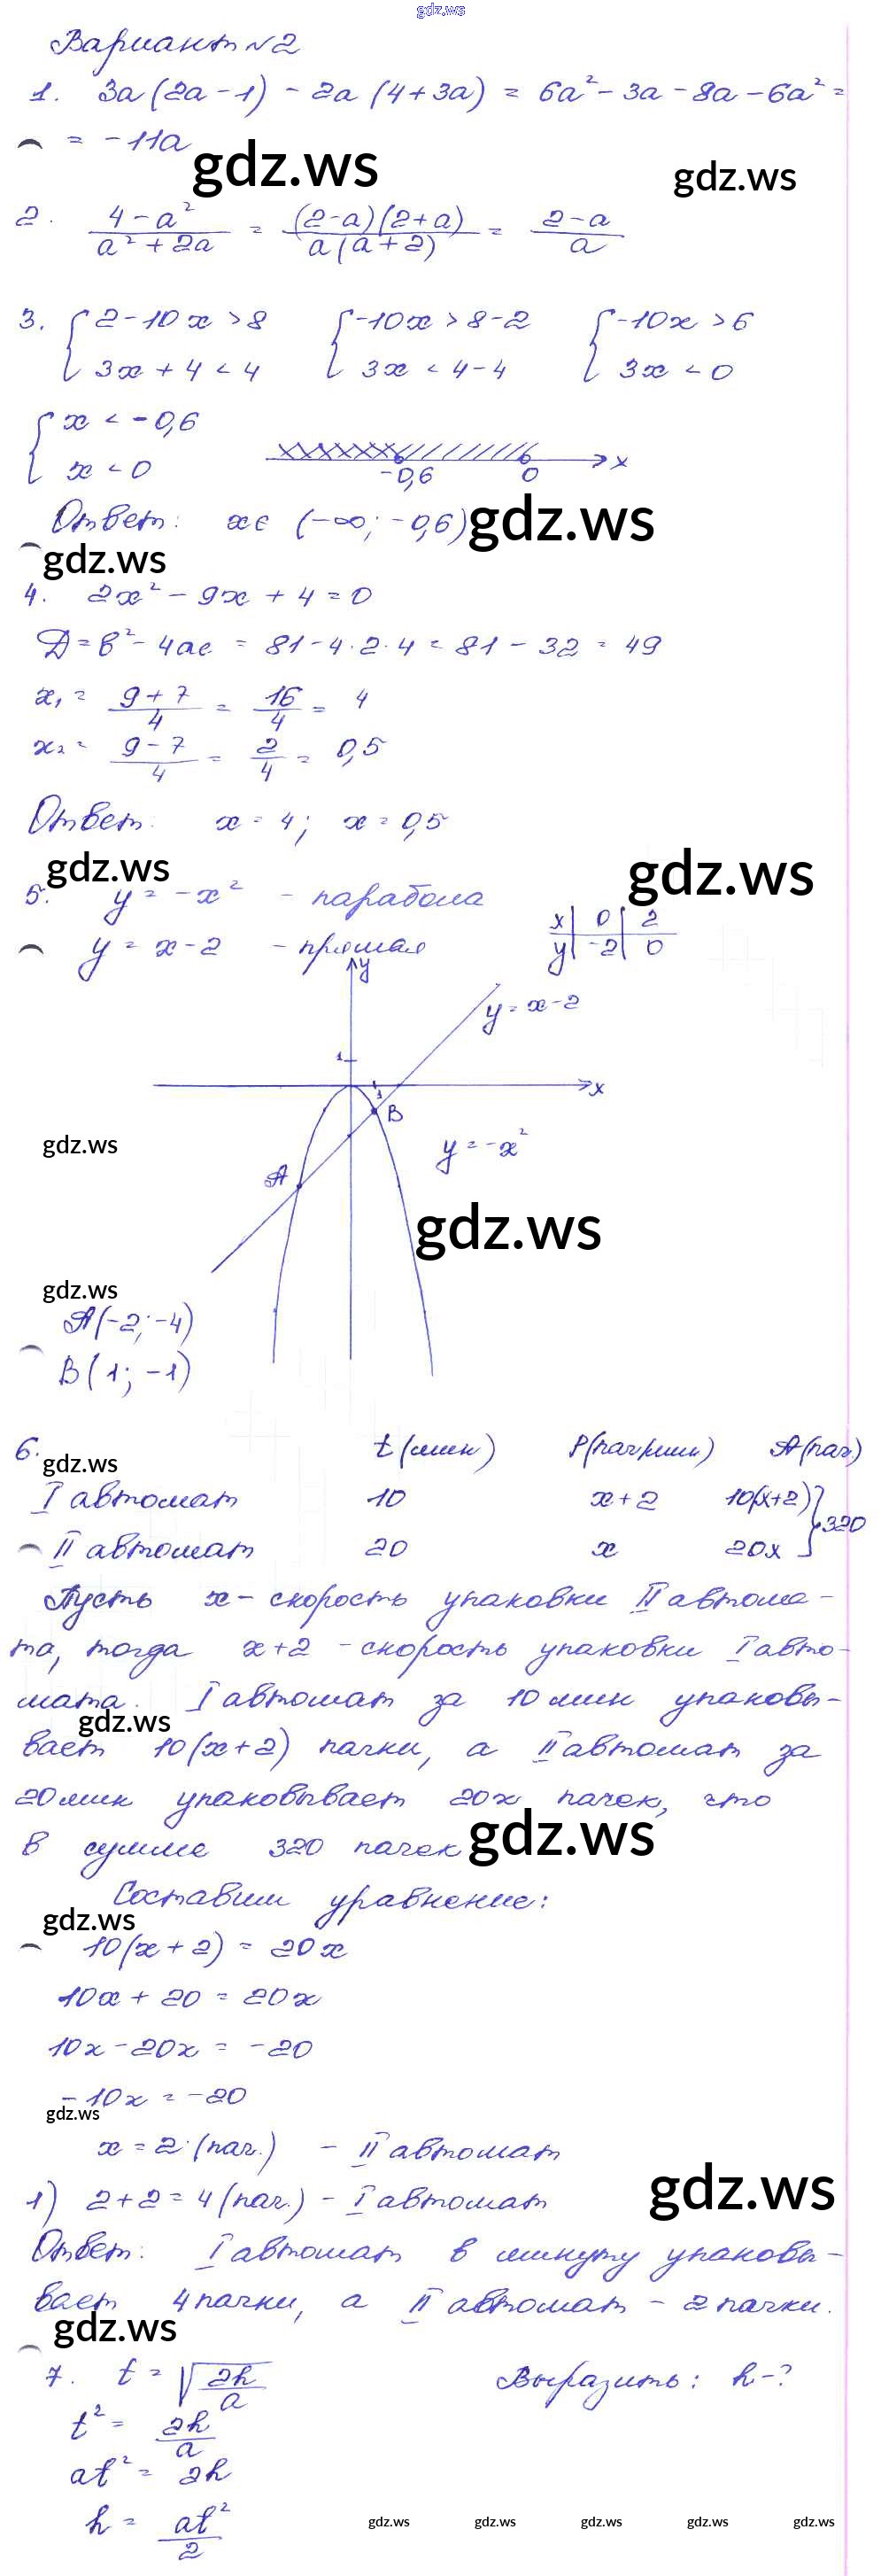 gdz.ws
Вариант №2
1. 3a(2a-1) - 2a(4+3a) = 6a² - 3a - 8a - 6a² =
= -11a
gdz.ws gdz.ws
2. (4-a²)/(a²+2a) = ((2-a)(2+a))/(a(a+2)) = (2-a)/a
3. { 2-10x > 8 { -10x > 8-2 { -10x > 6
3x+4 < 4 3x < 4-4 3x < 0
{ x < -0,6
x < 0 -0,6 0 x
Ответ: x∈ (-∞; -0,6) gdz.ws
gdz.ws
4. 2x² - 9x + 4 = 0
Д = в² - 4ac = 81 - 4·2·4 = 81 - 32 = 49
x₁ = (9+7)/4 = 16/4 = 4
x₂ = (9-7)/4 = 2/4 = 0,5
Ответ: x = 4; x = 0,5
gdz.ws gdz.ws
5. y = -x² - парабола
y = x-2 - прямая
x | 0 | 2
y | -2 | 0
y
y = x-2
1
1 x
B
gdz.ws
y = -x²
A
gdz.ws
gdz.ws
A(-2; -4)
B(1; -1)
6. t(мин) P(пач/мин) A(пач.)
gdz.ws
I автомат 10 x+2 10(x+2) } 320
II автомат 20 x 20x
Пусть x - скорость упаковки II автома-
та, тогда x+2 - скорость упаковки I авто-
мата. I автомат за 10 мин упаковы-
gdz.ws
вает 10(x+2) пачки, а II автомат за
20 мин упаковывает 20x пачек, что
в сумме 320 пачек gdz.ws
Составим уравнение:
gdz.ws
10(x+2) = 20x
10x + 20 = 20x
10x - 20x = -20
-10x = -20
gdz.ws
x = 2 (пач.) - II автомат
1) 2+2 = 4 (пач.) - I автомат
gdz.ws
Ответ: I автомат в минуту упаковы-
вает 4 пачки, а II автомат - 2 пачки.
gdz.ws
7. t = √(2h/a) Выразить: h-?
t² = 2h/a
at² = 2h
h = at²/2
gdz.ws gdz.ws gdz.ws gdz.ws gdz.ws